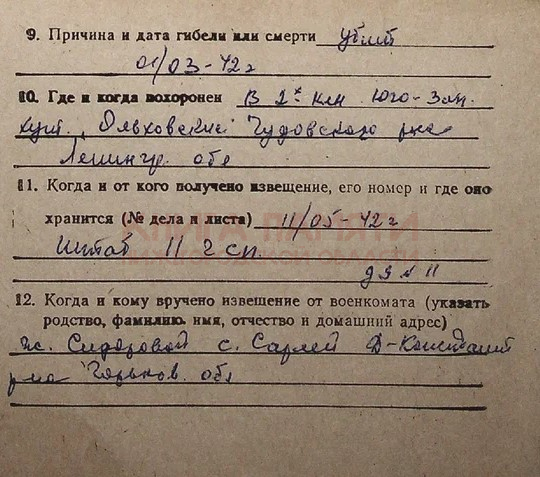 9. Причина и дата гибели или смерти убит
01/03-42 г
10. Где и когда похоронен В 2х клм Юго-Зап.
хут. Ольховские Чудовского р-на
Ленингр. обл
11. Когда и от кого получено извещение, его номер и где оно
хранится (№ дела и листа) 11/05-42 г
КНИГА ПАМЯТИ
Штаб 11 г сп.
НИЖЕГОРОДСКОЙ ОБЛАСТИ
д 9 л 11
12. Когда и кому вручено извещение от военкомата (указать
родство, фамилию, имя, отчество и домашний адрес)
ж. Сидоровой с. Сарлей Д-Констант
р-на Горьков. обл